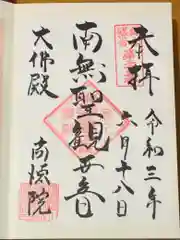 奉拝
令和三年
六月十八日
南無聖観世音
大佛殿
高徳院